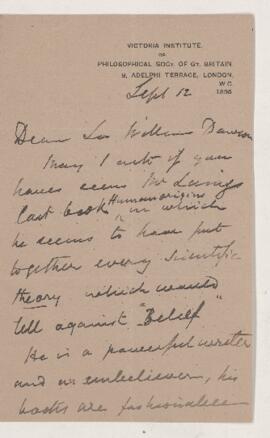 VICTORIA INSTITUTE.
OR
PHILOSOPHICAL SOCY. OF GT. BRITAIN.
9, ADELPHI TERRACE, LONDON,
W.C.
Sept 12
Dear Sir William Dawson
May I ask if you
have seen Mr Laings
last book "Human origins" in which
he seems to have put
together every scientific
theory which would
tell against "Belief"
He is a powerful writer
and an unbeliever, his
books are fashionable